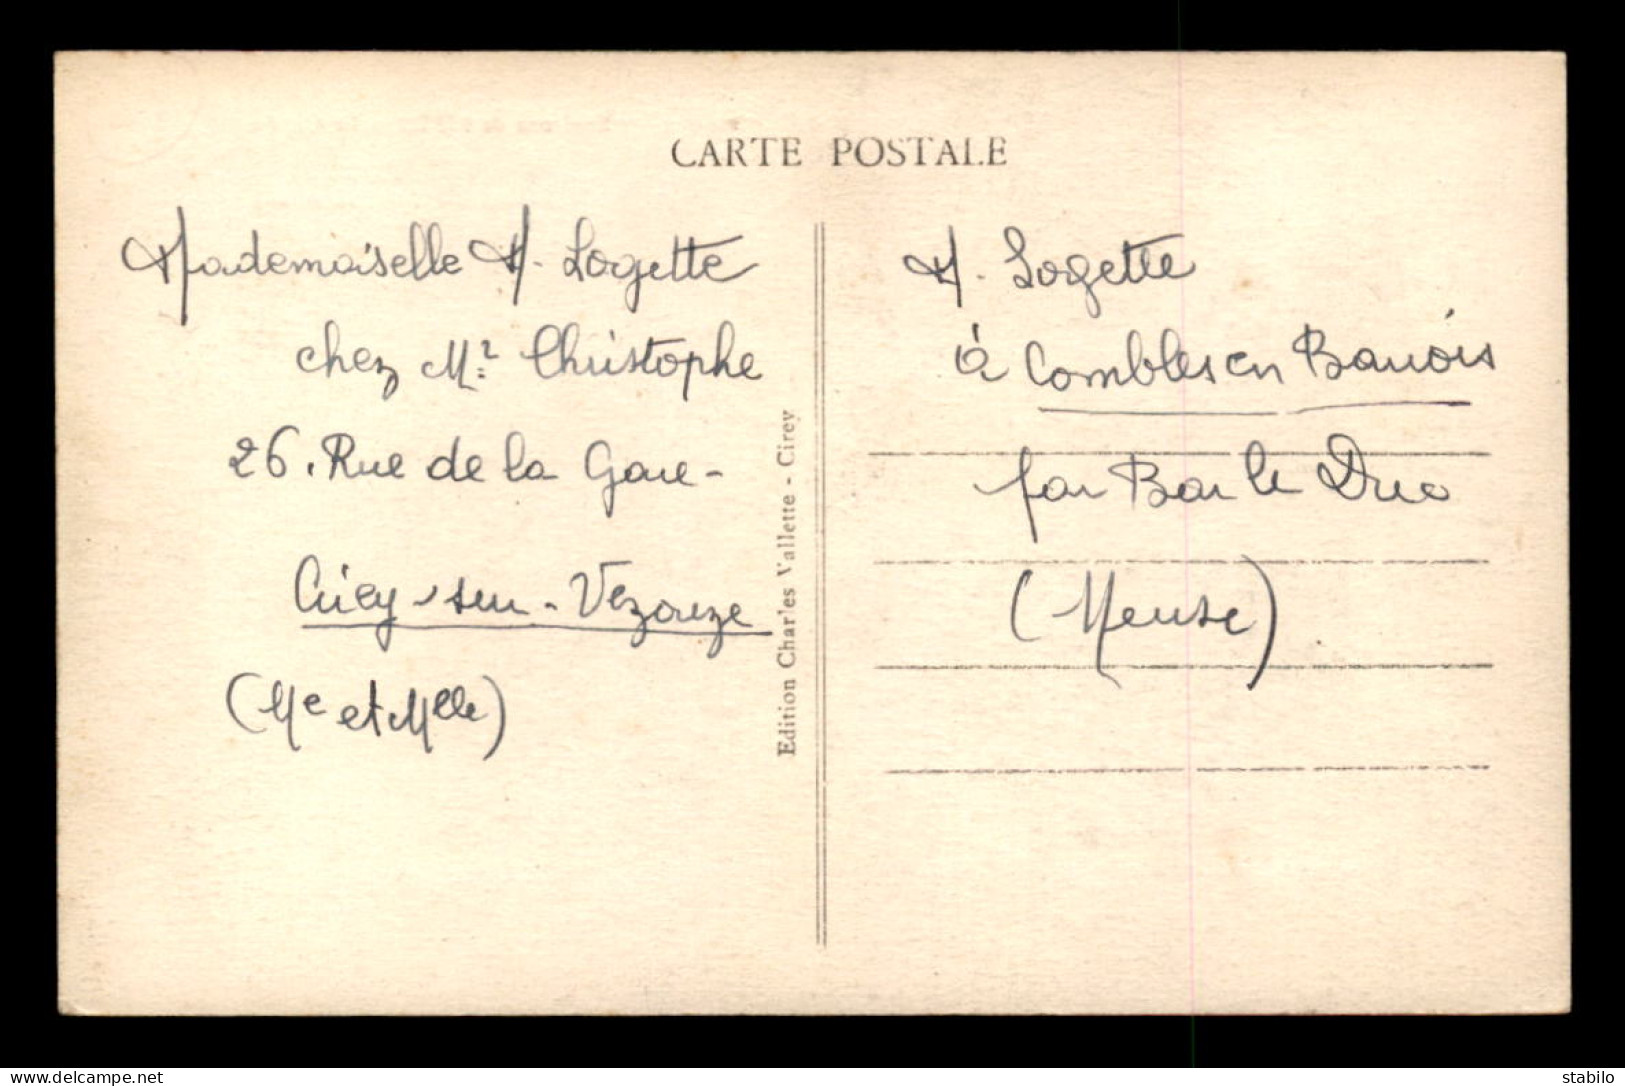 CARTE POSTALE
Mademoiselle H. Logette
chez Mr Christophe
26. Rue de la Gare -
Cirey - sur - Vezouze
(Me et Melle)
Edition Charles Vallette - Cirey
H. Logette
à Combles en Barrois
par Bar le Duc
(Meuse)
delcampe.net
stabilo